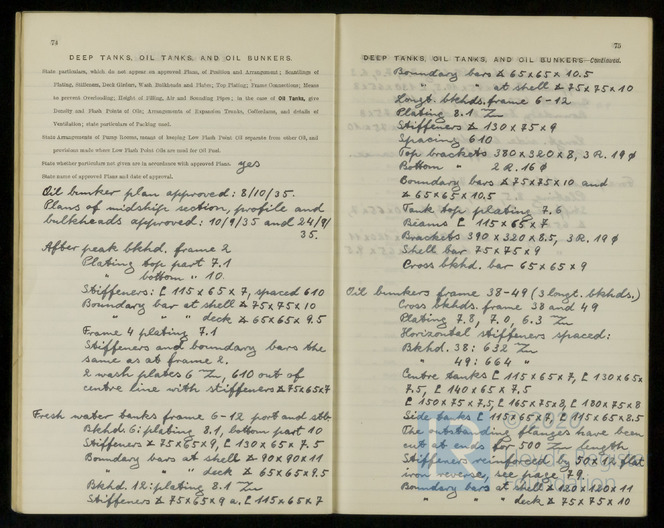 74
DEEP TANKS, OIL TANKS, AND OIL BUNKERS.
State particulars, which do not appear on approved Plans, of Position and Arrangement; Scantlings of
Plating, Stiffeners, Deck Girders, Wash Bulkheads and Plates; Top Plating; Frame Connections; Means
to prevent Overloading; Height of Filling, Air and Sounding Pipes; in the case of Oil Tanks, give
Density and Flash Points of Oils; Arrangements of Expansion Trunks, Cofferdams, and details of
Ventilation; state particulars of Packing used.
State Arrangements of Pump Rooms, means of keeping Low Flash Point Oil separate from other Oil, and
provisions made where Low Flash Point Oils are used for Oil Fuel.
State whether particulars not given are in accordance with approved Plans. yes
State name of approved Plans and date of approval.
Oil bunker plan approved: 8/10/35.
Plans of midship section, profile and
bulkheads approved: 10/9/35 and 24/9/
35.
After peak bkhd. frame 2
Plating top part 7.1
" bottom " 10
Stiffeners: L 115 x 65 x 7, spaced 610
Boundary bar at shell 75x75x10
" " " deck 65x65x9.5
Frame 4 plating 7.1
Stiffeners and boundary bars the
same as at frame 2.
2 wash plates 6 m, 610 out of
centre line with stiffeners 75x65x7
Fresh water tanks frame 6-12 port and stb.
Bkhd. 6: plating 8.1, bottom part 10
Stiffeners 75x65x9, L 130x65x7.5
Boundary bars at shell 90x90x11
" " " deck 65x65x9.5
Bkhd. 12: plating 8.1 m
Stiffeners 75x65x9 a. L 115x65x7
75
DEEP TANKS, OIL TANKS, AND OIL BUNKERS—Continued.
Boundary bars 65x65x10.5
" " at shell 75x75x10
Longt. bkhds. frame 6-12
Plating 8.1 m
Stiffeners 130x75x9
Spacing 610
Top brackets 380x320x8, 3 R. 19 ø
Bottom " 2 R. 16 ø
Boundary bars 75x75x10 and
65x65x10.5
Tank top plating 7.6
Beams L 115x65x7
Brackets 390x320x8.5, 3 R. 19 ø
Shell bar 75x75x9
Cross bkhd. bar 65x65x9
Oil bunkers frame 38-49 (3 longt. bkhds.)
Cross bkhds. frame 38 and 49
Plating 7.8, 7.0, 6.3 m
Horizontal stiffeners spaced:
Bkhd. 38: 632 m
" 49: 664 "
Centre tanks L 115x65x7, L 130x65x
7.5, L 140x65x7.5
L 150x75x7.5, L 165x75x8, L 180x75x8
Side tanks L 115x65x7, L 115x65x8.5
The outstanding flanges have been
cut at ends for 500 m length
Stiffeners reinforced by 50x12 flat
iron reverse, see page 79
Boundary bars at shell 120x120x11
" " " deck 75x75x10
© 2020
Lloyd's Register
Foundation